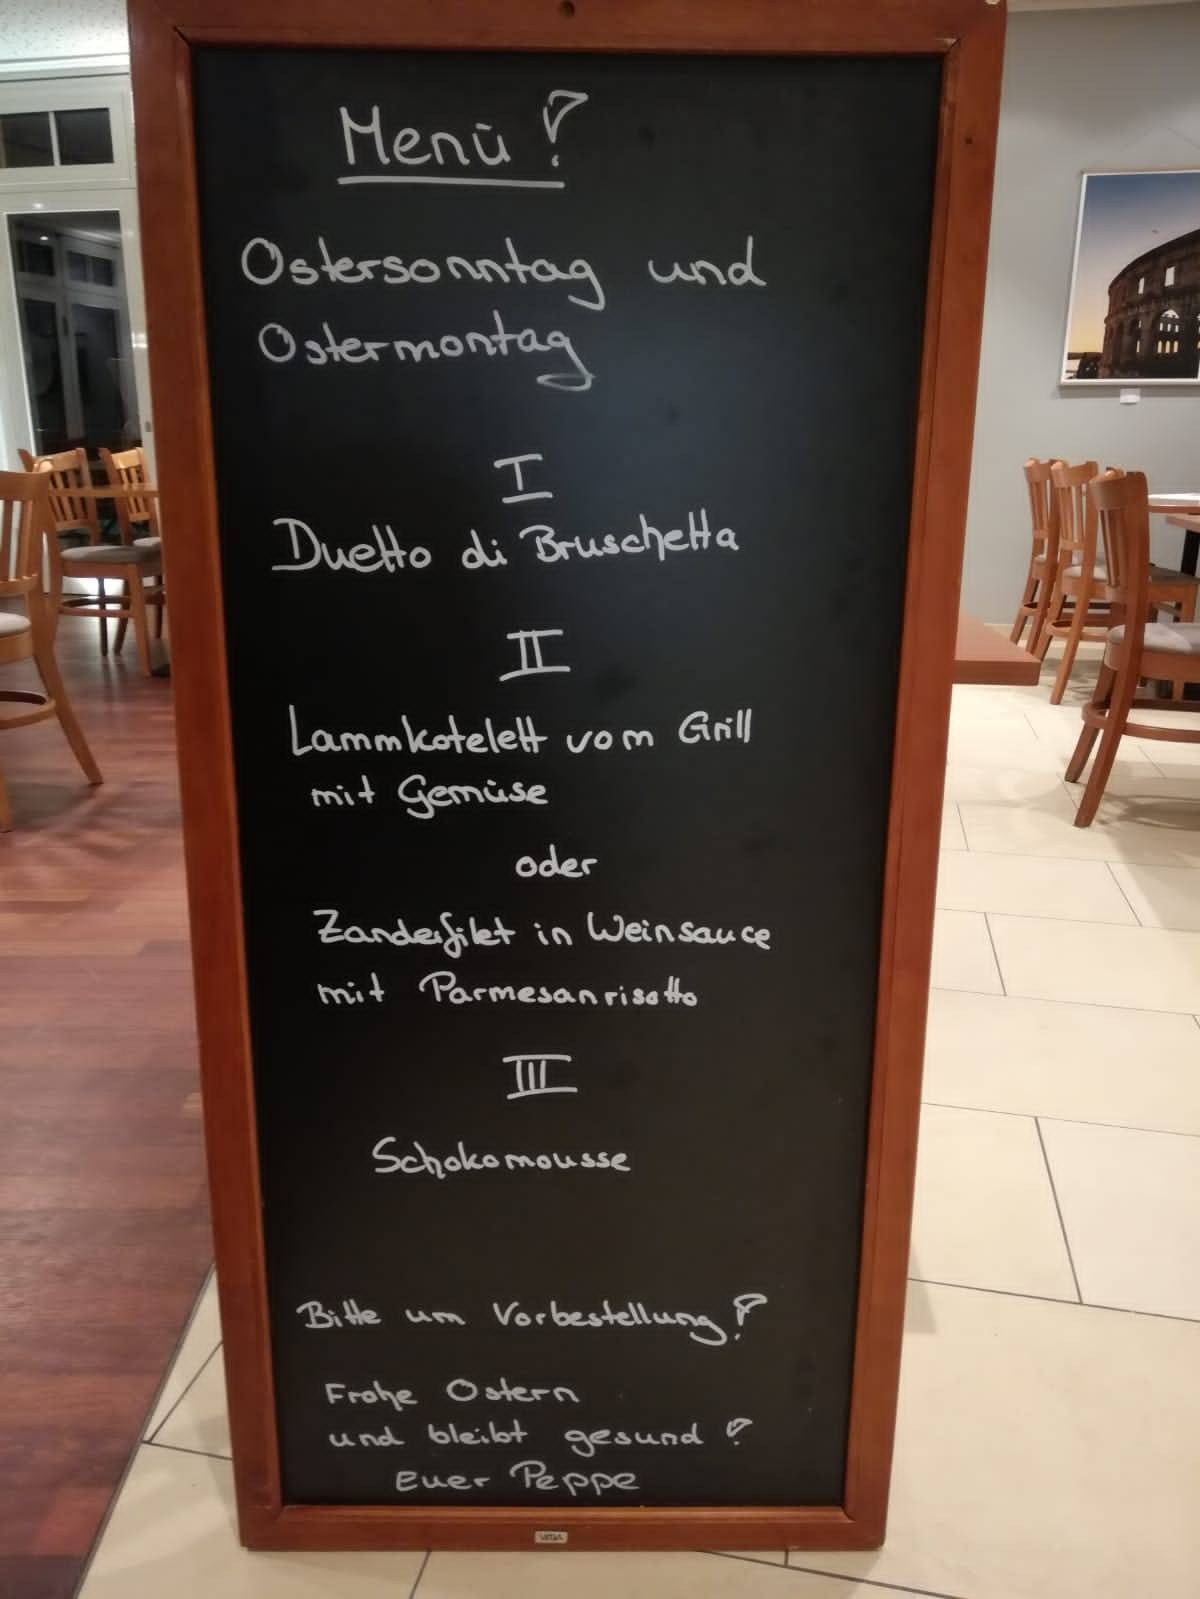 Menü!
Ostersonntag und
Ostermontag
I
Duetto di Bruschetta
II
Lammkotelett vom Grill
mit Gemüse
oder
Zanderfilet in Weinsauce
mit Parmesanrisotto
III
Schokomousse
Bitte um Vorbestellung!
Frohe Ostern
und bleibt gesund!
Euer Peppe